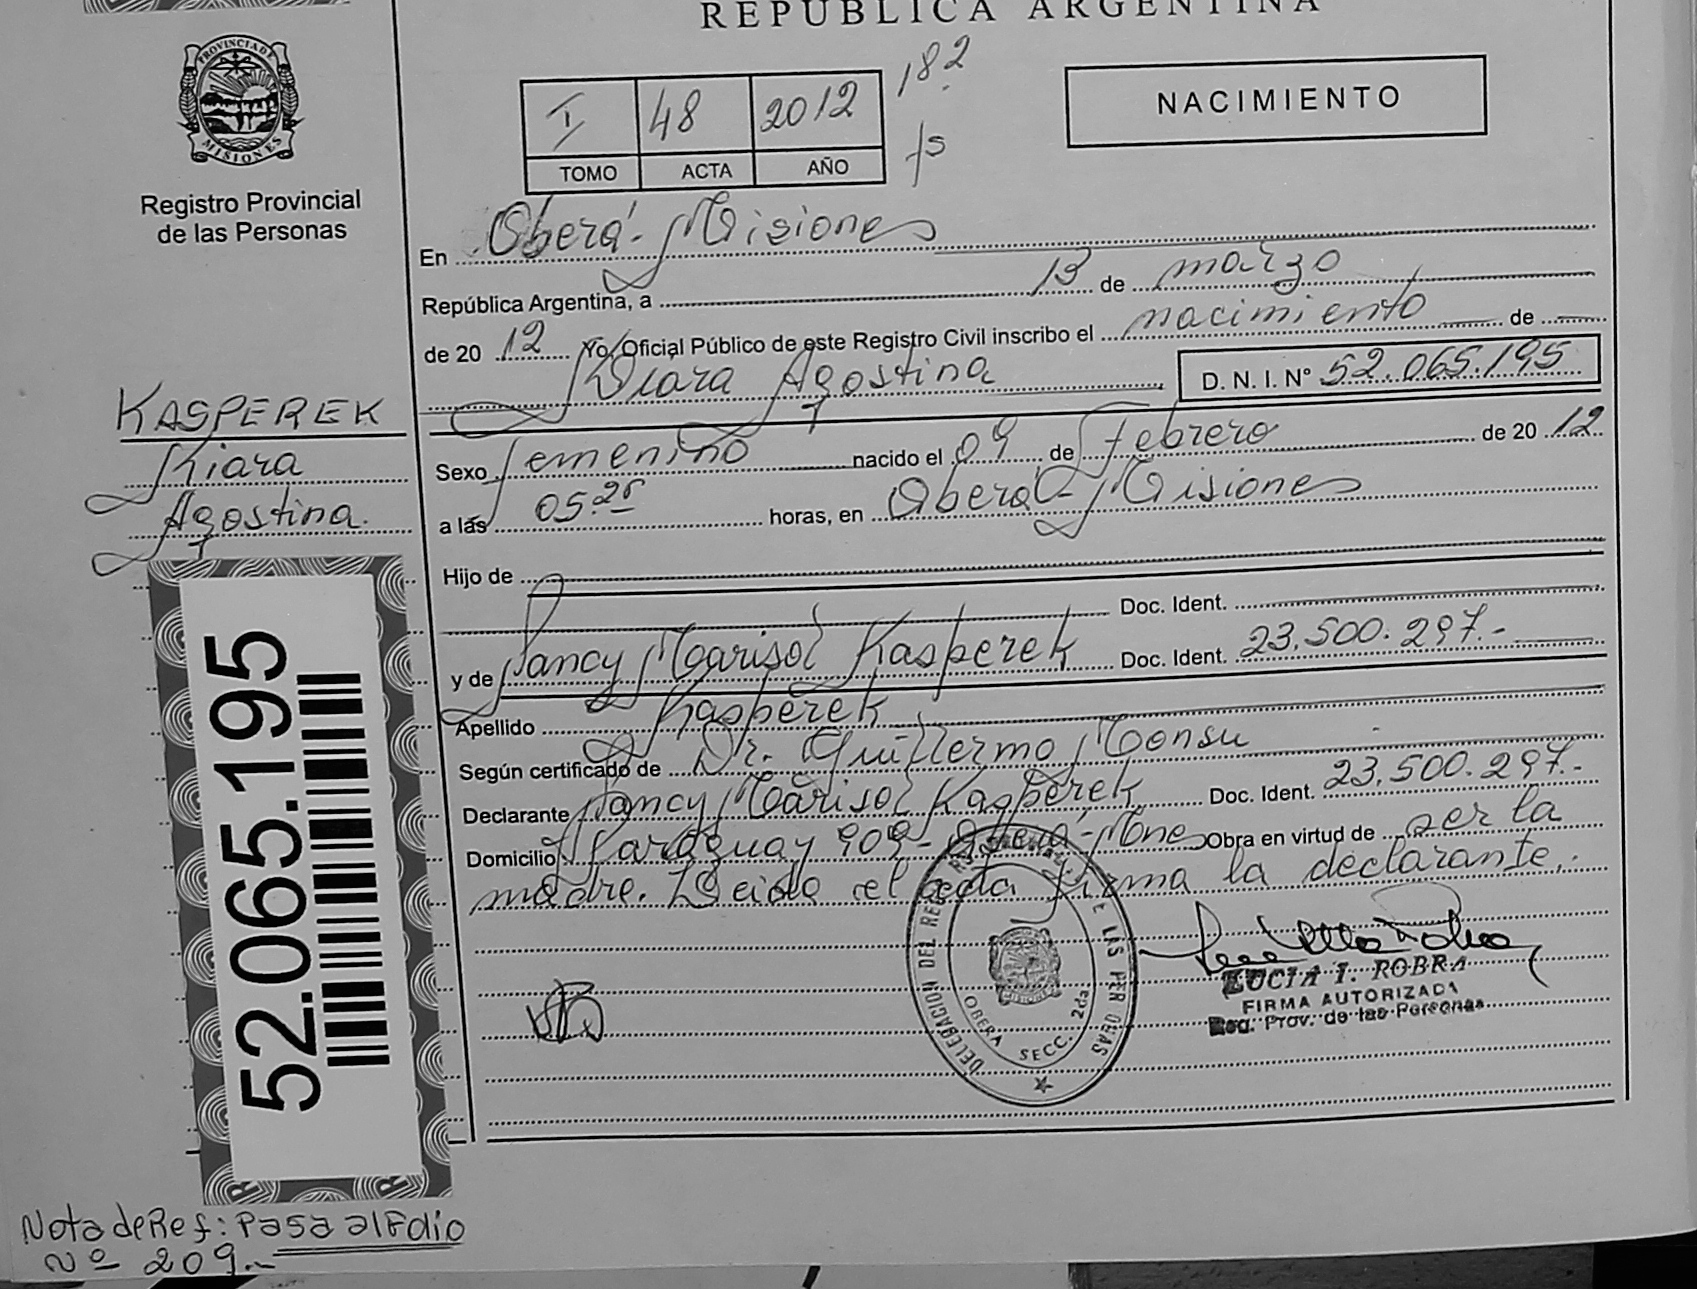 REPÚBLICA ARGENTINA
PROVINCIA DE
MISIONES
Registro Provincial
de las Personas
I 48 2012 182
TOMO ACTA AÑO fs
NACIMIENTO
En Oberá - Misiones
República Argentina, a 13 de marzo
de 20 12 Yo, Oficial Público de este Registro Civil inscribo el nacimiento de
Kiara Agostina D. N. I. Nº 52.065.195
KASPEREK
Kiara
Agostina.
Sexo femenino nacido el 09 de febrero de 20 12
a las 05 25 horas, en Oberá - Misiones
Hijo de
Doc. Ident.
y de Nancy Marisol Kasperek Doc. Ident. 23.500.297.-
Apellido Kasperek
Según certificado de Dr. Guillermo Monsu
Declarante Nancy Marisol Kasperek Doc. Ident. 23.500.297.-
Domicilio Paraguay 909 - Oberá - Mnes Obra en virtud de ser la
madre. Leida el acta firma la declarante.
DELEGACION DEL REG DE LAS PERSONAS
OBERA SECC. 2da
LUCIA I. ROBRA
FIRMA AUTORIZADA
Reg. Prov. de las Personas
52.065.195
Nota de Ref: Pasa al Folio
Nº 209.-